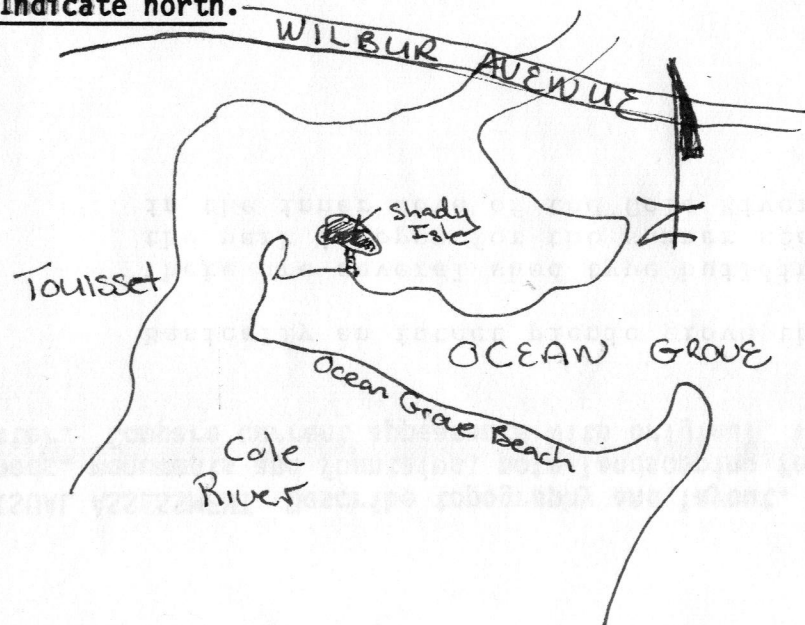 Indicate north.
WILBUR AVENUE
shady
Isle
Touisset
OCEAN GROVE
Ocean Grove Beach
Cole
River